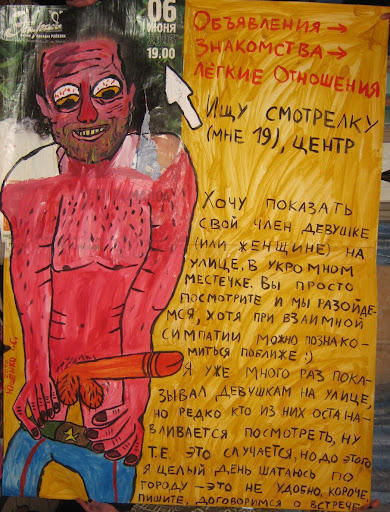 06
ИЮНЯ
19.00
Объявления →
Знакомства →
Лёгкие Отношения
Ищу смотрелку
(мне 19), центр
Хочу показать
свой член девушке
(или женщине) на
улице, в укромном
местечке. Вы просто
посмотрите и мы разойде-
мся, хотя при взаимной
симпатии можно познако-
миться поближе :)
Я уже много раз пока-
зывал девушкам на улице,
но редко кто из них остана-
вливается посмотреть, ну
т.е. это случается, но до этого
я целый день шатаюсь по
городу – это не удобно, короче,
пишите, договоримся о встрече